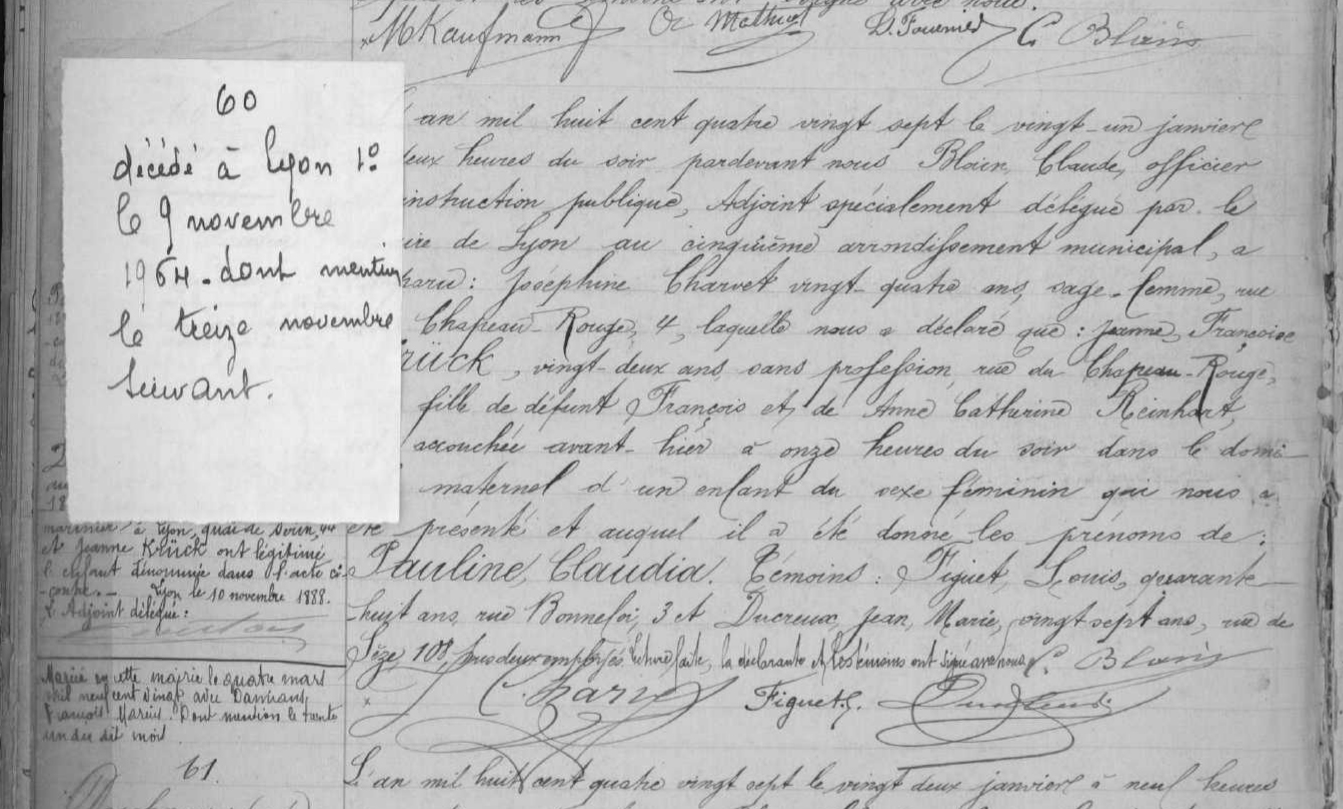 MKaufmann Mathieu D. Fournier C Blain
60
décédé à Lyon 1º
le 9 novembre
1964 - dont mention
le treize novembre
suivant.
an mil huit cent quatre vingt sept le vingt-un janvier
deux heures du soir pardevant nous Blain, Claude, officier
instruction publique, Adjoint spécialement délégué par le
ire de Lyon au cinquième arrondissement municipal, a
paru : Joséphine Charvet vingt-quatre ans, sage-femme, rue
Chapeau-Rouge, 4, laquelle nous a déclaré que : Jeanne, Françoise
rück, vingt-deux ans, sans profession, rue du Chapeau-Rouge,
fille de défunt François et, de Anne Catherine Reinhart,
accouchée avant-hier à onze heures du soir dans le domi-
maternel d'un enfant du sexe féminin qui nous a
été présenté et auquel il a été donné les prénoms de :
Pauline, Claudia. Témoins : Figuet, Louis, quarante-
huit ans, rue Bonnefoi, 3 et Ducreux, Jean, Marie, vingt sept ans, rue de
Sèze 108, tous deux employés. Lecture faite, la déclarante et les témoins ont signé avec nous C. Blain
Charvet Figuet L.
marinier à Lyon, quai de Serin, 44
et Jeanne Krück ont légitimé
l'enfant dénommée dans l'acte ci-
-contre. - Lyon le 10 novembre 1888.
L'Adjoint délégué :
Mariée en cette mairie le quatre mars
mil neuf cent vingt avec
François Marius. Dont mention le trente
un du dit mois
61.
L'an mil huit cent quatre vingt sept le vingt deux janvier à neuf heures